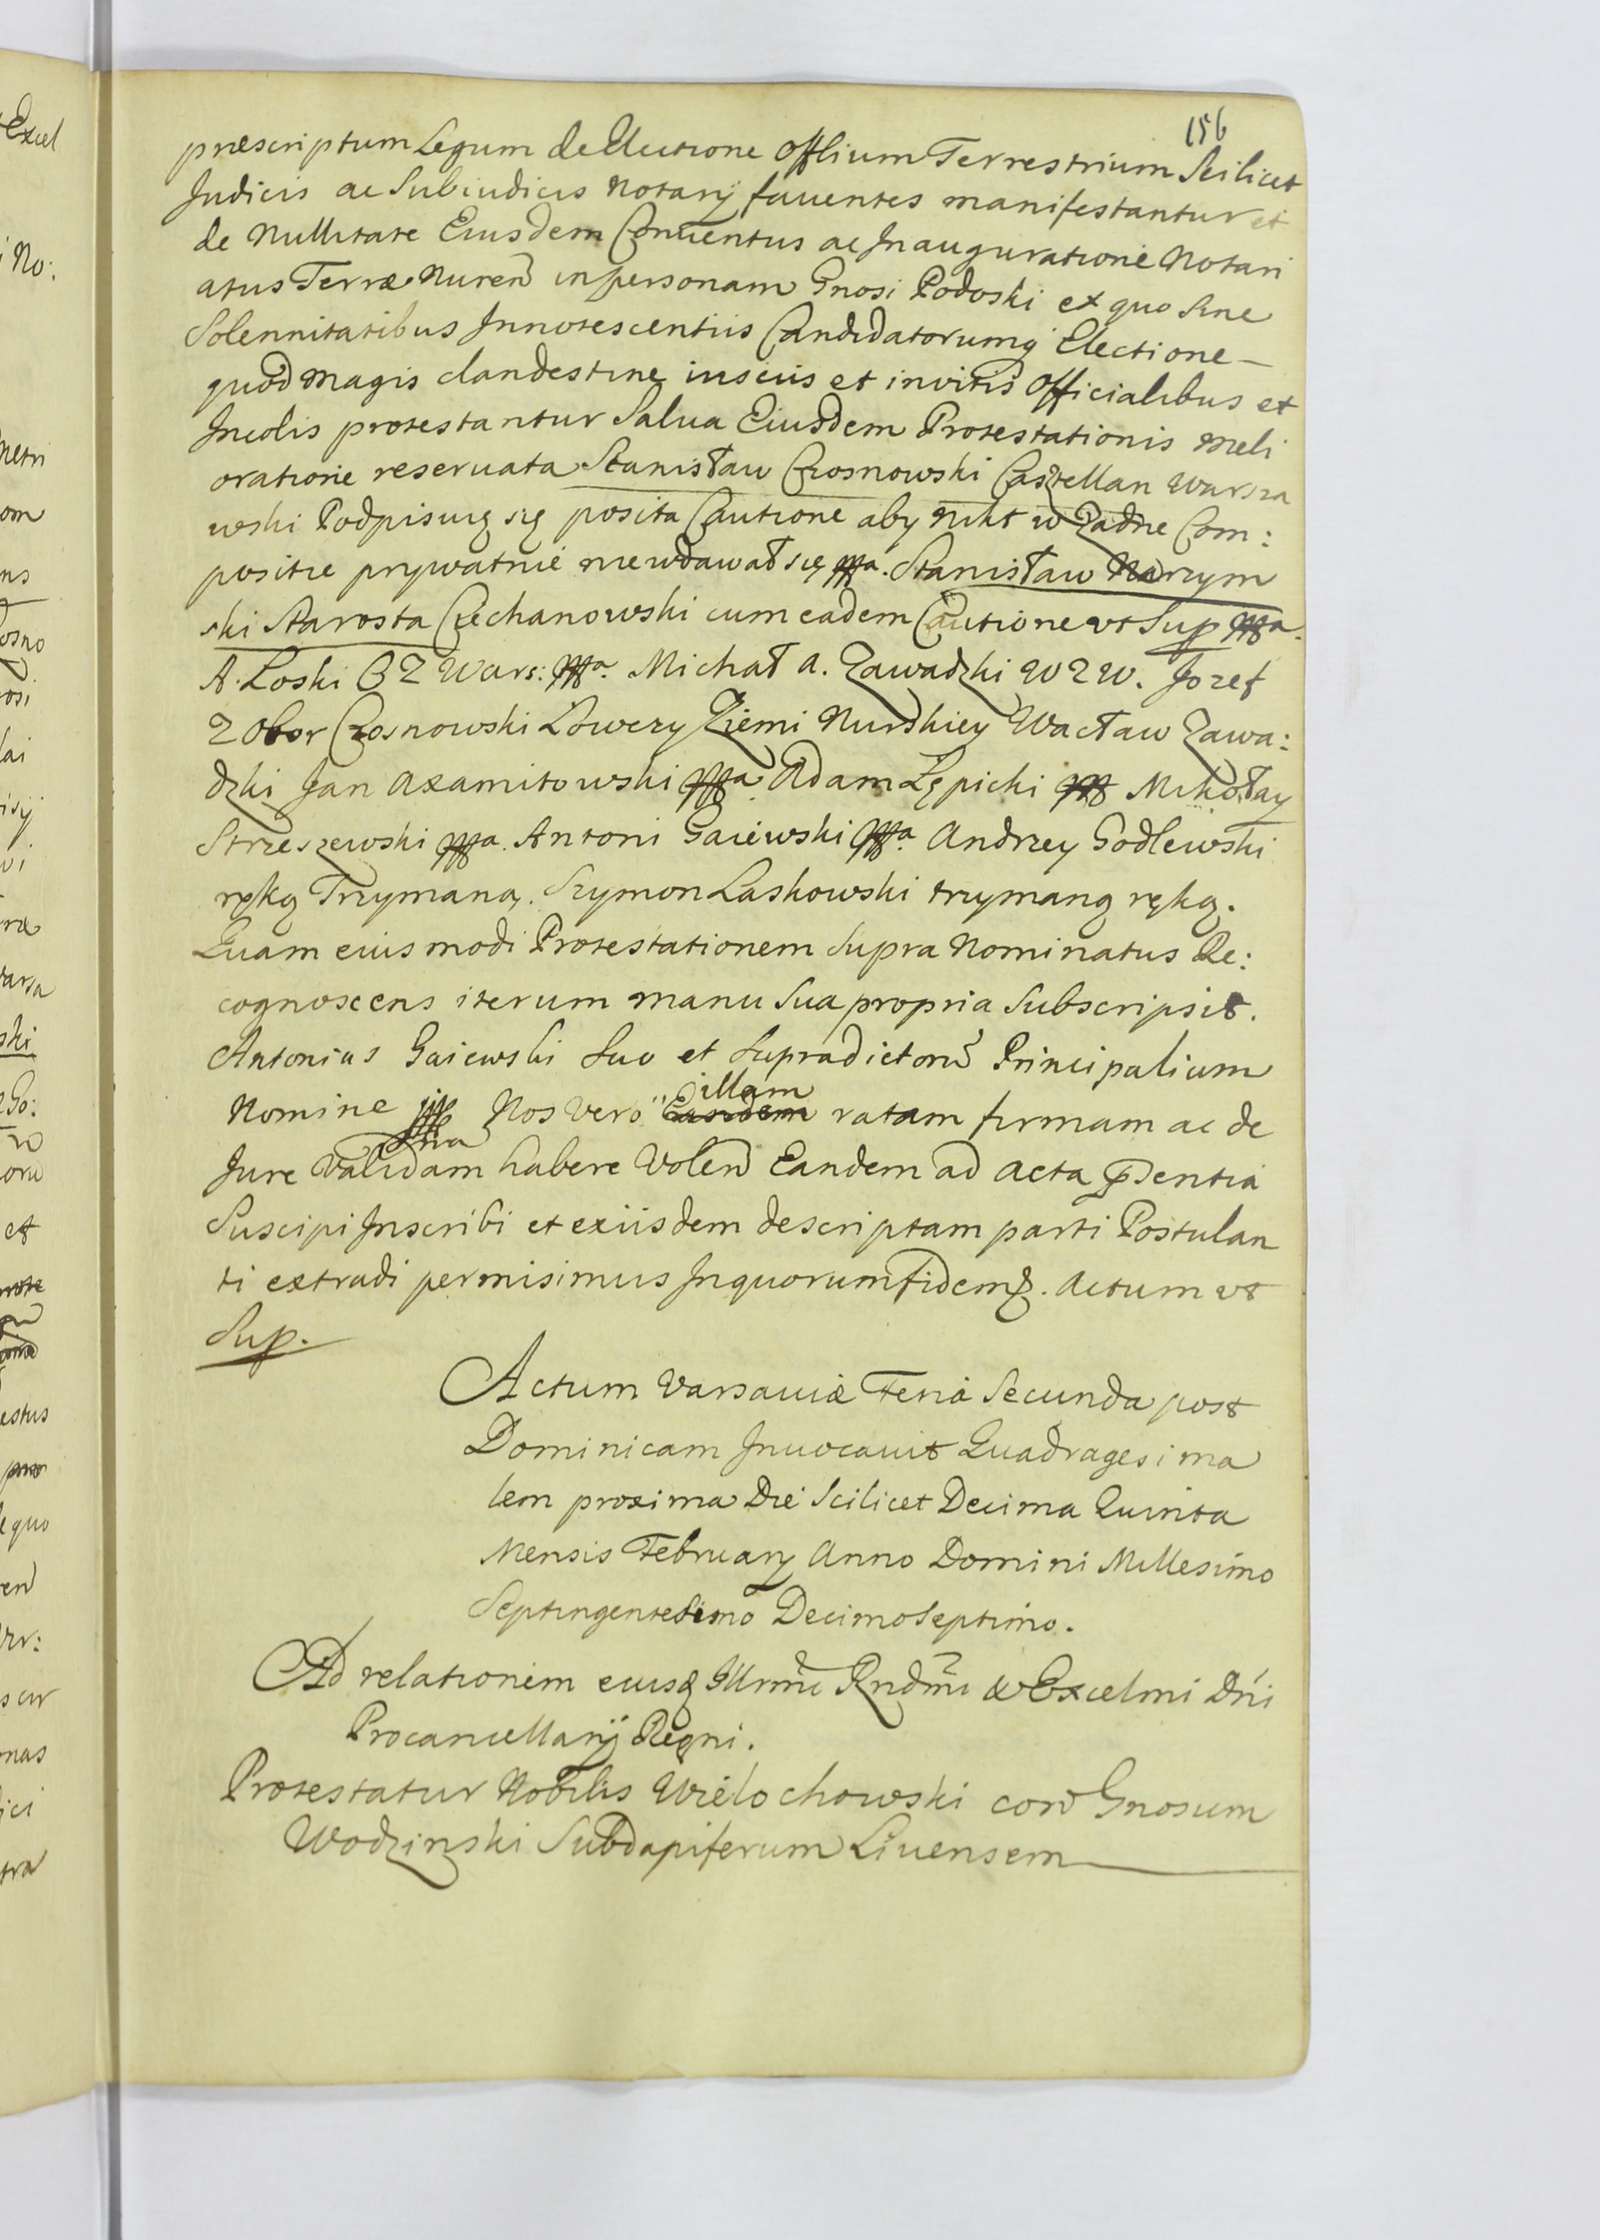 156
præscriptum Legum de Electione Offlium Terrestrium Scilicet
Judicis ac Subiudicis Notarÿ fauentes manifestantur et
de Nullitate Eiusdem Conuentus ac Inauguratione Notari
atus Terræ Nuren in personam Gnosi Podoski ex quo sine
Solennitatibus Innotescentiis Candidatorumq Electione
quod magis clandestine insciis et invitis Officialibus et
Incolis protestantur Salua Eiusdem Protestationis meli
oratione reseruata Stanisław Czosnowski Casztellan Warsza
wski Podpisuię się posita Cautione aby nikt w Żadne Com:
positie prywatnie niewdawał się mpa. Stanisław Narzym
ski Starosta Czechanowski cum eadem Cautione vt Sup mpa.
A. Łoski C Z Wars: mpa. Michał A. Zawadzki W Z W. Jozef
z Obor Czosnowski Łowczy Ziemi Nurskiey Wacław Zawa:
dzki Jan Axamitowski mpa Adam Łępicki mp Mikołay
Strzeszewski mpa. Antoni Gaiewski mpa. Andrzey Godlewski
ręką Trzymaną. Szymon Laskowski trzymaną ręką.
Quam eius modi Protestationem Supra Nominatus Re:
cognoscens iterum manu Sua propria Subscripsit.
Antonius Gaiewski Suo et Supradictorũ Principalium
Nomine mppria Nos vero illam Eandem ratam firmam ac de
Jure Validam habere Volen Eandem ad Acta Psentia
Suscipi Inscribi et exiisdem descriptam parti Postulan
ti extradi permisimus In quorum fidem. Actum vt
Sup.
Actum Varsauiæ Feria Secunda post
Dominicam Inuocauit Quadragesima
lem proxima Die Scilicet Decima Quinta
Mensis Februarÿ Anno Domini Millesimo
Septingentesimo Decimo Septimo.
Ad relationem eiusq Illrmi Rndmi & Excelmi Dni
Procancellarÿ Regni.
Protestatur Nobilis Wielochowski con Gnosum
Wodzinski Subdapiferum Liuensem